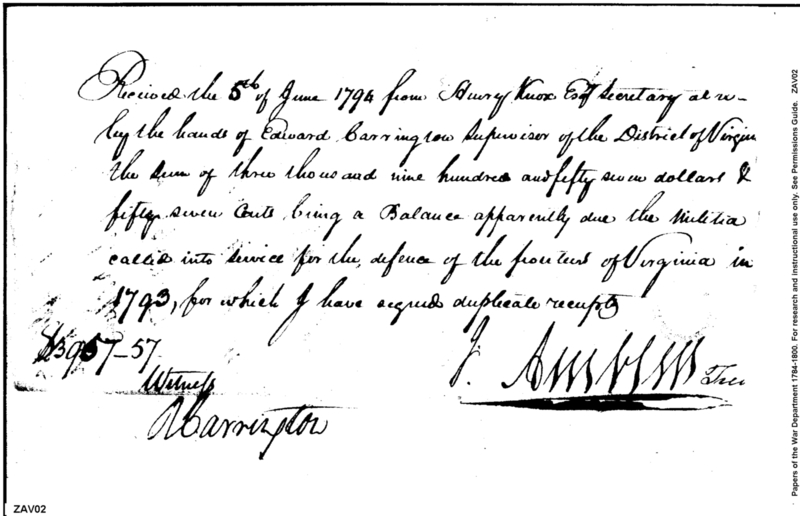 Received the 5th of June 1794 from Henry Knox Esqr Secretary at w-
by the hands of Edward Carrington Supervisor of the District of Virgin
the sum of three thousand nine hundred and fifty seven dollars &
fifty seven Cents being a Balance apparently due the Militia
called into service for the defence of the frontiers of Virginia in
1793, for which I have signed duplicate receipts
$3957-57
J. Ambler
Witness
Carrington
ZAV02
Papers of the War Department 1784-1800. For research and instructional use only. See Permissions Guide. ZAV02